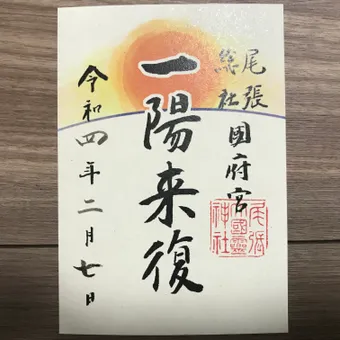 尾張
総社
國府宮
一陽来復
令和四年二月七日
尾張
國霊
神社